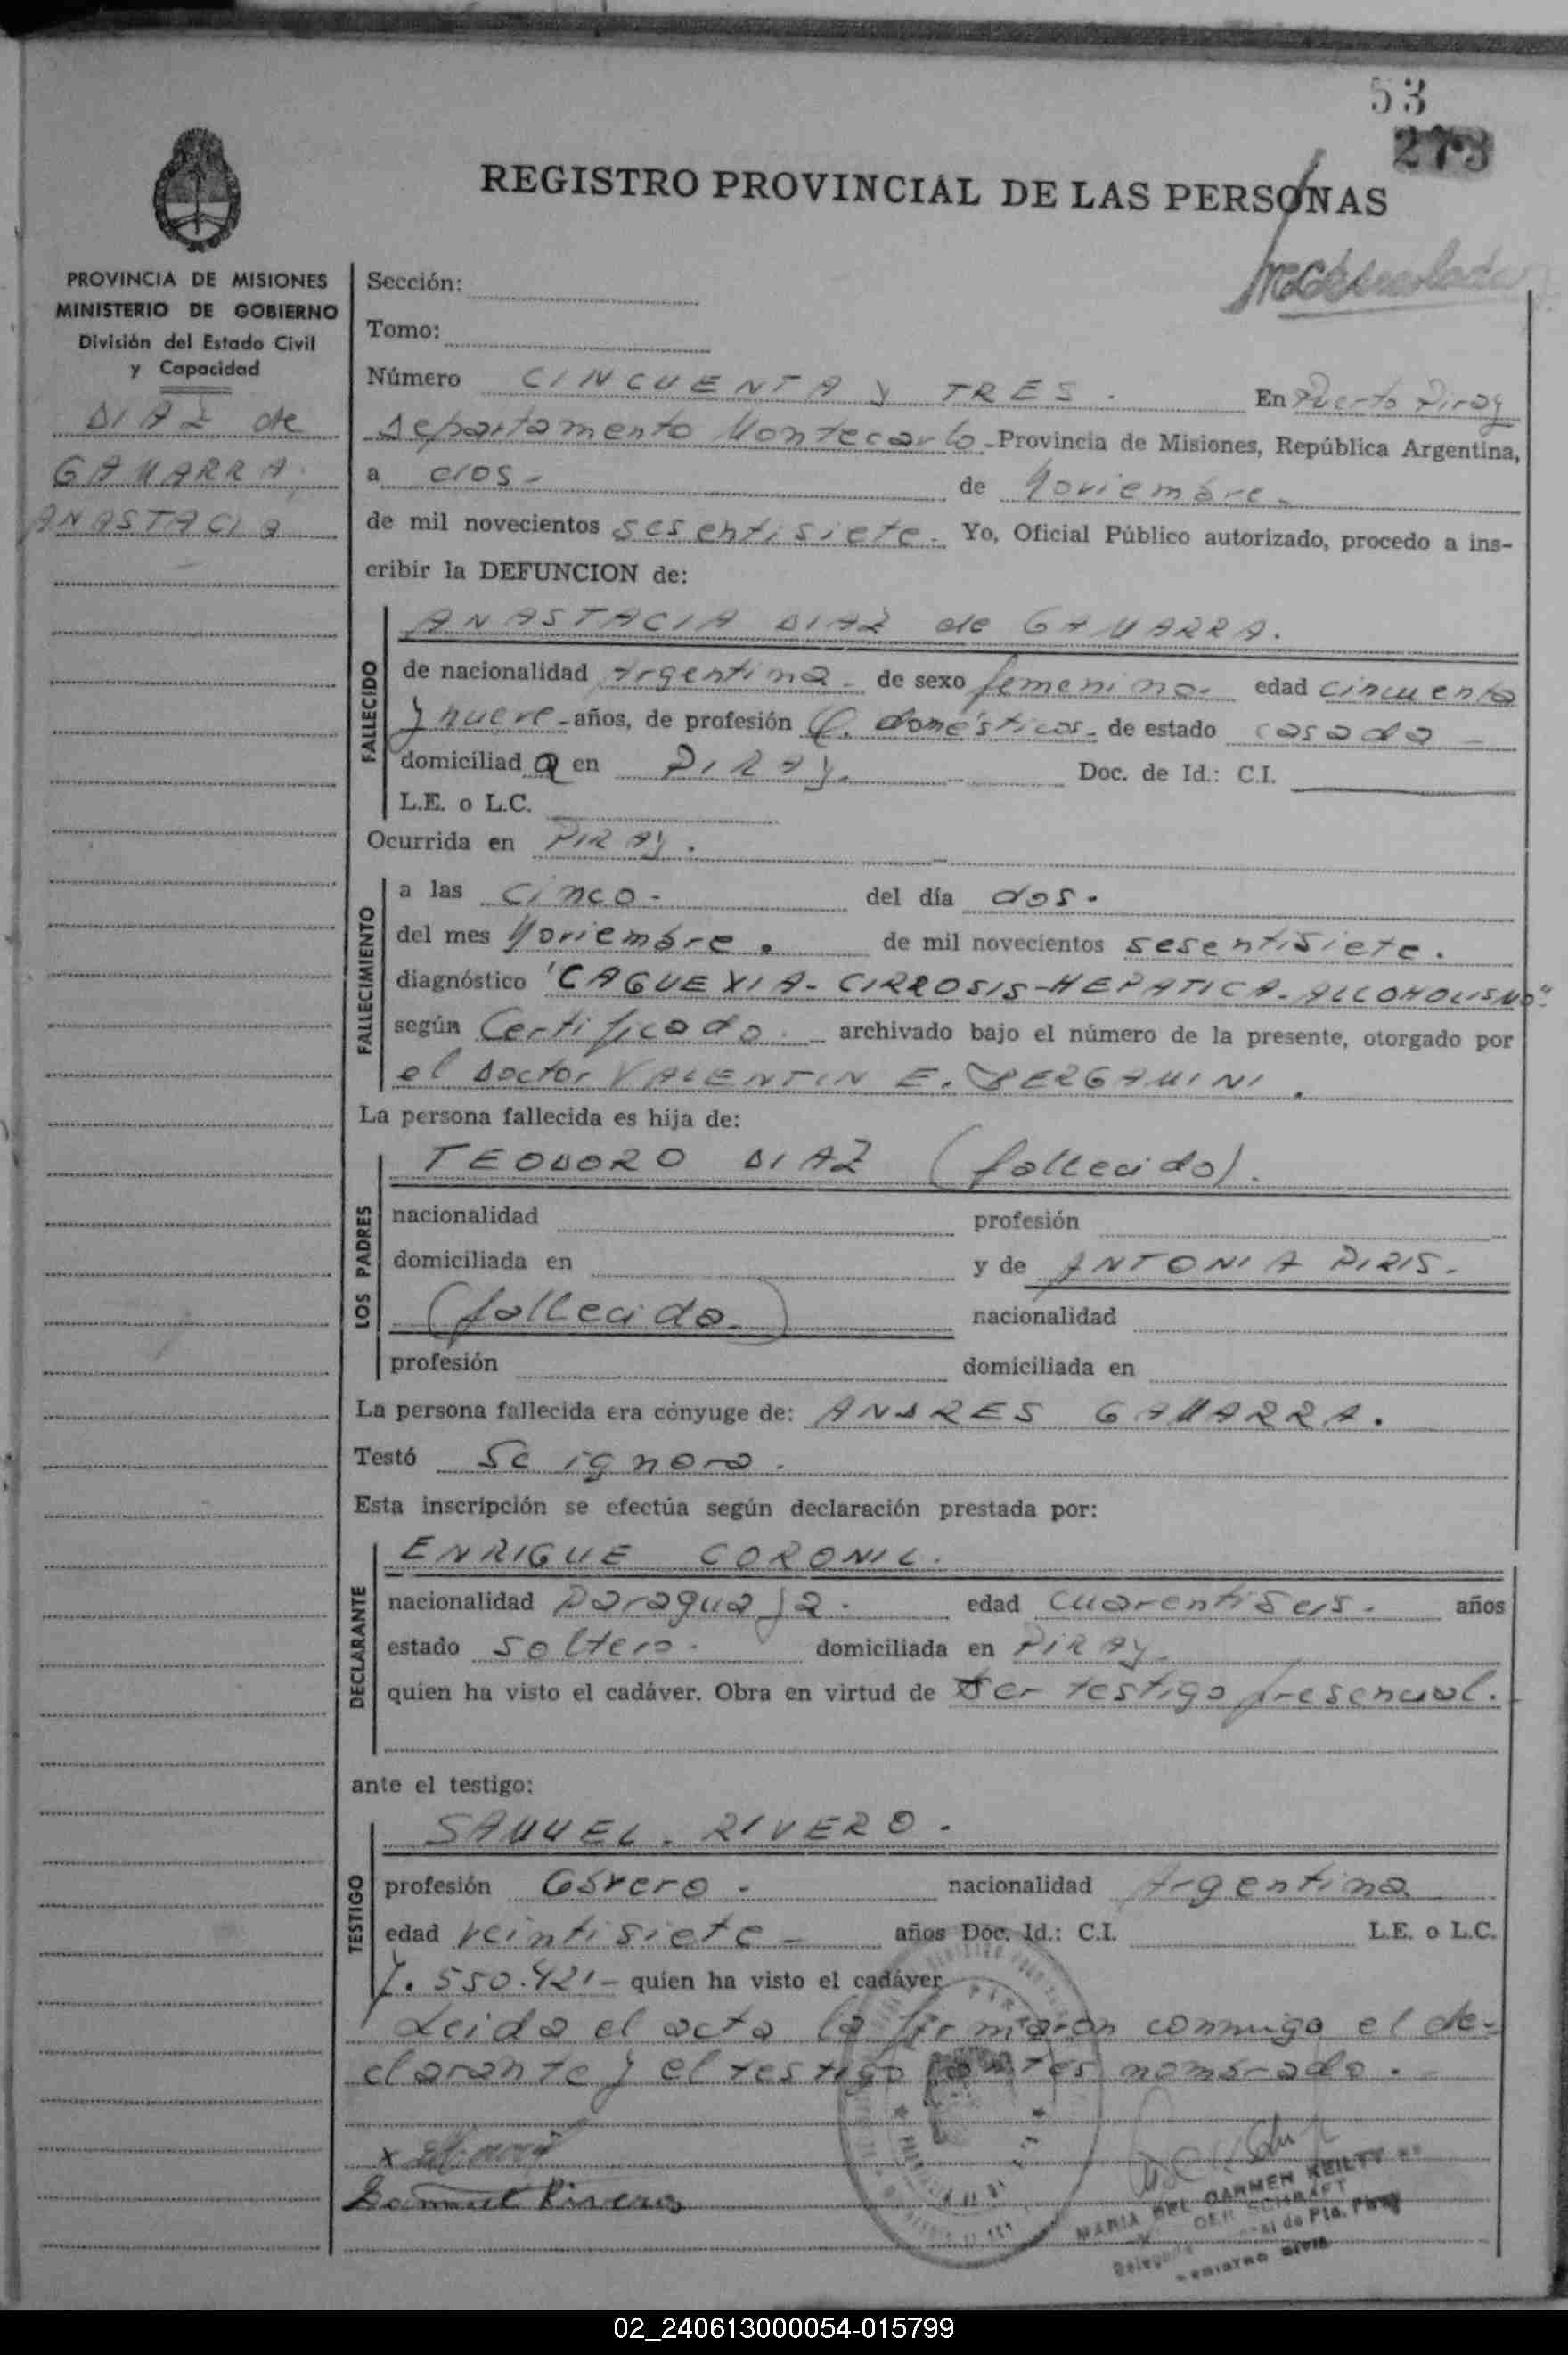 53
273
REGISTRO PROVINCIAL DE LAS PERSONAS
PROVINCIA DE MISIONES
MINISTERIO DE GOBIERNO
División del Estado Civil
y Capacidad
DIAZ de
GAMARRA,
ANASTACIA
Sección:
Tomo:
Número CINCUENTA y TRES. En Puerto Piray
departamento Montecarlo - Provincia de Misiones, República Argentina,
a dos - de Noviembre -
de mil novecientos sesentisiete - Yo, Oficial Público autorizado, procedo a ins-
cribir la DEFUNCION de:
FALLECIDO
ANASTACIA DIAZ de GAMARRA.
de nacionalidad Argentina - de sexo femenino - edad cincuenta
y nueve - años, de profesión Q. domésticos - de estado casada -
domiciliad a en PIRAY. Doc. de Id.: C.I.
L.E. o L.C.
Ocurrida en PIRAY.
FALLECIMIENTO
a las cinco - del día dos.
del mes Noviembre. de mil novecientos sesentisiete.
diagnóstico "CAQUEXIA - CIRROSIS - HEPATICA - ALCOHOLISMO"
según Certificado. - archivado bajo el número de la presente, otorgado por
el Doctor VALENTIN E. BERGAMINI.
La persona fallecida es hija de:
LOS PADRES
TEODORO DIAZ (fallecido).
nacionalidad profesión
domiciliada en y de ANTONIA PIRIS.
(fallecida) nacionalidad
profesión domiciliada en
La persona fallecida era cónyuge de: ANDRES GAMARRA.
Testó Se ignora.
Esta inscripción se efectúa según declaración prestada por:
DECLARANTE
ENRIQUE CORONIL.
nacionalidad Paraguaya. edad cuarentiseis. años
estado soltero. domiciliada en PIRAY.
quien ha visto el cadáver. Obra en virtud de ser testigo presencial.
ante el testigo:
TESTIGO
SAMUEL. RIVERO.
profesión Obrero. nacionalidad Argentina
edad veintisiete - años Doc. Id.: C.I. L.E. o L.C.
7.550.421 - quien ha visto el cadáver
Leida el acta la firmaron conmigo el de-
clarante y el testigo antes nombrado.
x
Samuel Rivero
MARIA DEL CARMEN KEILTY
DER SCHRAFT
de Pto. Piray
REGISTRO CIVIL
02_240613000054-015799